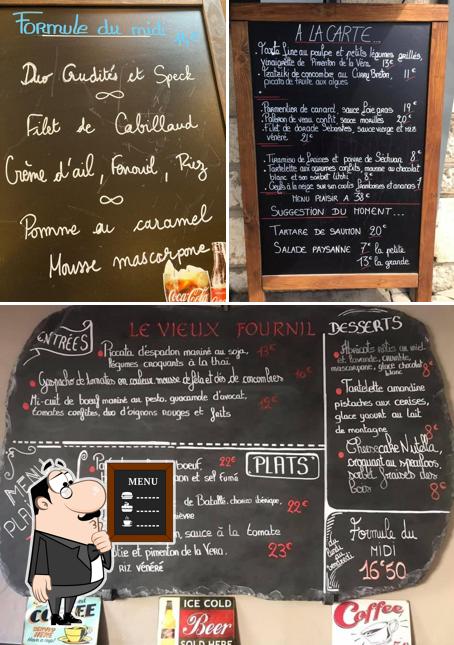 Formule du midi
Duo Crudités et Speck
Filet de Cabillaud
Crème d'ail, Fenouil, Riz
Pomme au caramel
Mousse mascarpone
Coca-Cola
A LA CARTE...
au poulpe et petits légumes grillés,
vinaigrette de Pimenton de la Vera. 13€
Tzatziki de concombre au Curry Breton, 11€
picata de fruits aux algues
Parmentier de canard, sauce foie gras 19€
de veau confit, sauce morilles 20€
Filet de dorade Sébastes, sauce vierge et riz
vénéré 21€
Tiramisu de fraises et poivre de Séchuan 8€
Tartelette aux agrumes confits, mousse au chocolat
blanc et son sorbet litchi 8€
MENU PLAISIR A 38€
SUGGESTION DU MOMENT...
TARTARE DE SAUMON 20€
SALADE PAYSANNE 7€ la petite
13€ la grande
LE VIEUX FOURNIL
ENTRÉES
Piccata d'espadon mariné au soja, 13€
légumes croquants à la thaï
Gaspacho de tomates en couleur, mousse de feta et dés de concombres 10€
Mi-cuit de bœuf mariné au pesto, guacamole d'avocat, 12€
tomates confites, duo d'oignons rouges et frits
DESSERTS
Abricots rôtis au miel
et lavande, crumble,
mascarpone, glace chocolat
blanc 8€
Tartelette amandine
pistaches aux cerises,
glace yaourt au lait
de montagne 8€
Cheesecake Nutella,
croquant au spéculoos,
sorbet fraises des
bois 8€
PLATS
boeuf 22€
on et sel fumé
de Batallé, chorizo ibérique, 22€
sauce à la tomate
et pimenton de la Vera. 23€
RIZ VÉNÉRÉ
MENU
MENU
Formule du
MIDI
16€50
du lundi
au vendredi
COFFEE
ICE COLD
Beer
SOLD HERE
Coffee